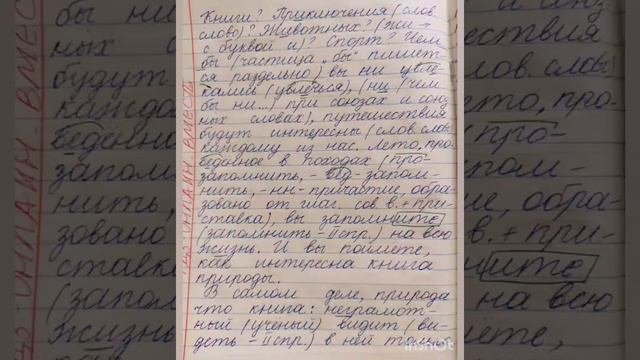 Книги? Приключения (слов.
слово)? Животных? (жи –
с буквой и)? Спорт? Чем
бы (частица „бы" пишет-
ся раздельно) вы ни увле-
кались (увлечься), (ни (чем
бы ни...) при союзах и союз-
ных словах), путешествия
будут интересны (слов. слово)
каждому из нас. Лето, про-
веденное в походах (про-
запомнить, - вед - запом-
нить, -нн- причастие, обра-
зовано от глаг. сов. в. + при-
ставка), вы запомните
(запомнить – II спр.) на всю
жизнь. И вы поймете,
как интересна книга
природы.
В самом деле, природа
что книга: неграмот-
ный (ученый) видит (ви-
деть – II спр.) в ней только
ОНЛАЙН. ВМЕСТЕ
InShot